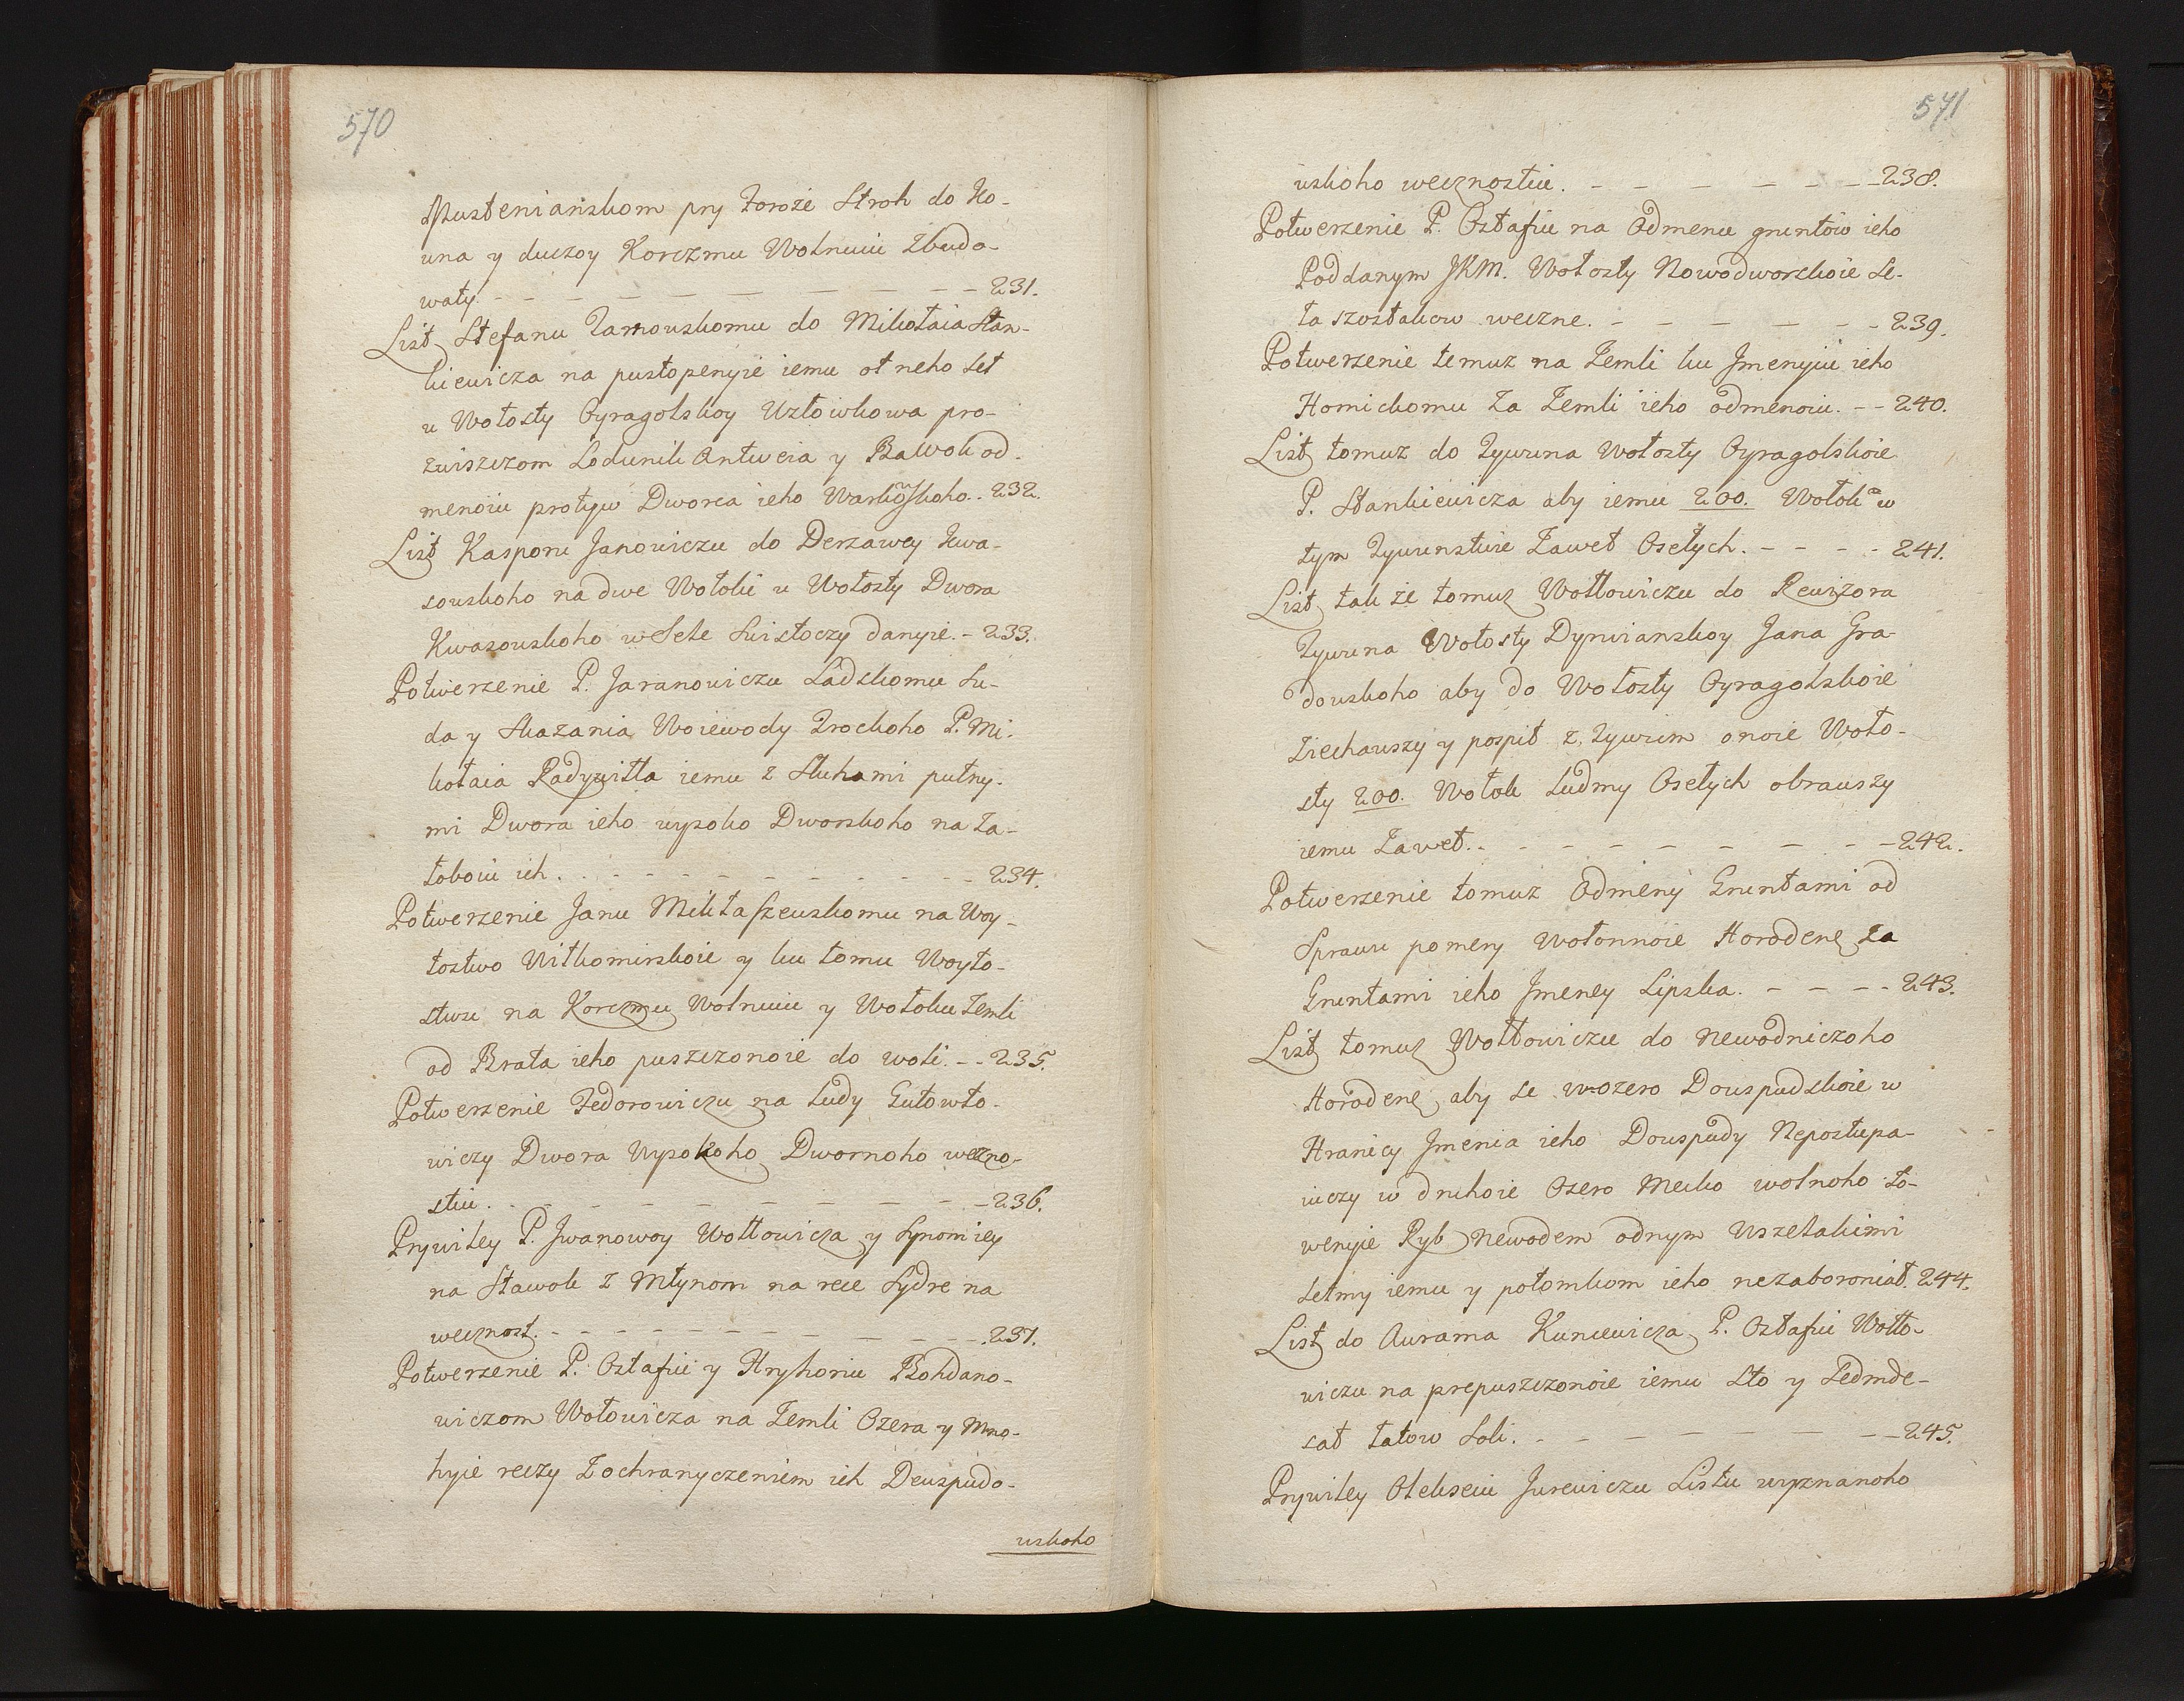 570
Musteniańskom pry Doroże Stroh do Ko-
una y druzoy Korczmu Wolnuiu Zbudo-
waty. - - - - - - - - - 231.
List Stefanu Tarnouskomu do Mikołaia Stan-
kiewicza na pustopenyie iemu ot neho Set
u Wołosty Oyragolskoy Uzłowkowa pro-
zwiszczom Lodunik Antweia y Bawoli od-
menoiu protyw Dworca ieho Warkowskoho. - 232.
List Kasporu Janowiczu do Derzawcy Kwa-
souskoho na dwe Wołoki u Wołosty Dwora
Kwasouskoho w Sele Swistoczy danyie. - 233.
Potwerzenie P. Jaranowiczu Ladskomu Su-
da y Skazania Woiewody Trockoho P. Mi-
kołaia Radywiłła iemu z Sluhami putny-
mi Dwora ieho wysoko Dworskoho na Za-
łoboiu ich. - - - - - - - - - 234.
Potwerzenie Janu Mikłaszeuskomu na Woy-
tostwo Wiłkomirskoie y ku tomu Woyto-
stwu na Korczmu Wolnuiu y Wołoku Zemli
od Brata ieho puszczonoie do woli. - - 235.
Potwerzenie Fedorowiczu na Ludy Gutowto-
wiczy Dwora Wysokoho Dwornoho weczno-
stiu. - - - - - - - - - 236.
Prywiley P. Iwanowoy Wołłowicza y Synom iey
na Stawok z Młynom na rece Sydre na
wecznost. - - - - - - - - - 237.
Potwerzenie P. Ostafiu y Hryhoriu Bohdano-
wiczom Wołowicza na Zemli Ozera y Mno-
hyie reczy Zochranyczeniem ich Deuspudo-
uskoho
571
uskoho wecznostiu. - - - - - - 238.
Potwerzenie P. Ostafiu na Odmenu gruntów ieho
Poddanym JKM. Wołosty Nowodworskoie Se-
ła szostakow weczne. - - - - - - 239.
Potwerzenie temuz na Zemli ku Jmenyiu ieho
Homickomu Za Zemli ieho odmenoiu. - - 240.
List tomuz do Tywuna Wołosty Oyragolskoie
P. Stankiewicza aby iemu 200. Wołok w
tym Tywunstwie Zaweł Osełych. - - - - 241.
List tak że tomuz Wołłowiczu do Rewizora
Tywuna Wołosty Dyrwianskoy Jana Gra-
douskoho aby do Wołosty Oyragolskoie
Ziechauszy y pospił z Tywum onoie Woło-
sty 200. Wołok Ludmy Osełych obrauszy
iemu Zaweł. - - - - - - - - 242.
Potwerzenie tomuz Odmeny Gruntami od
Sprawu pomery wołonnoie Horodene za
Gruntami ieho Jmeney Lipska. - - - - 243.
List tomuz Wołłowiczu do Newodniczoho
Horodene aby se w ozero Douspudskoie w
Hranicy Jmenia ieho Douspudy Nepostupa-
iuczy w druhoie Ozero Mecko wolnoho Lo-
wenyie Ryb Newodem odnym Wszelakimi
Setmy iemu y potomkom ieho nezaboroniał. 244.
List do Aurama Kuncewicza P. Ostafiu Wołło-
wiczu na prepuszczonoie iemu Sto y Sedmde-
sat Łatow Soli. - - - - - - - 245.
Prywiley Olekseiu Jurewiczu Listu wyznanoho